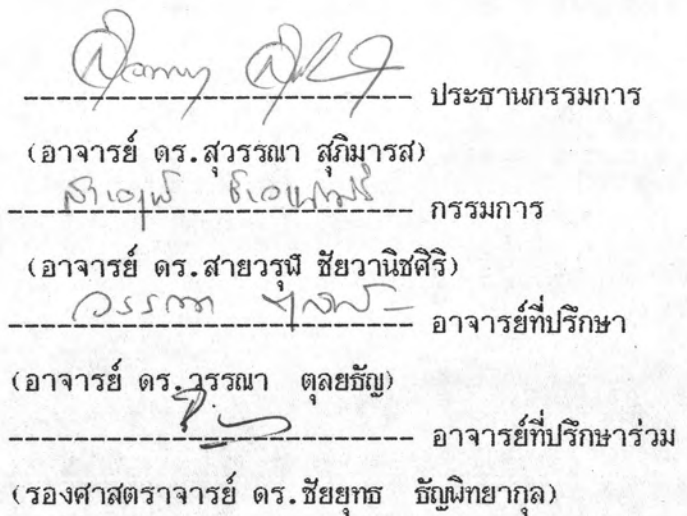 ประธานกรรมการ
(อาจารย์ ดร.สุวรรณา สุภิมารส)
กรรมการ
(อาจารย์ ดร.สายวรุฬ ชัยวานิชศิริ)
อาจารย์ที่ปรึกษา
(อาจารย์ ดร.วรรณา ตุลยธัญ)
อาจารย์ที่ปรึกษาร่วม
(รองศาสตราจารย์ ดร.ชัยยุทธ ธัญพิทยากุล)